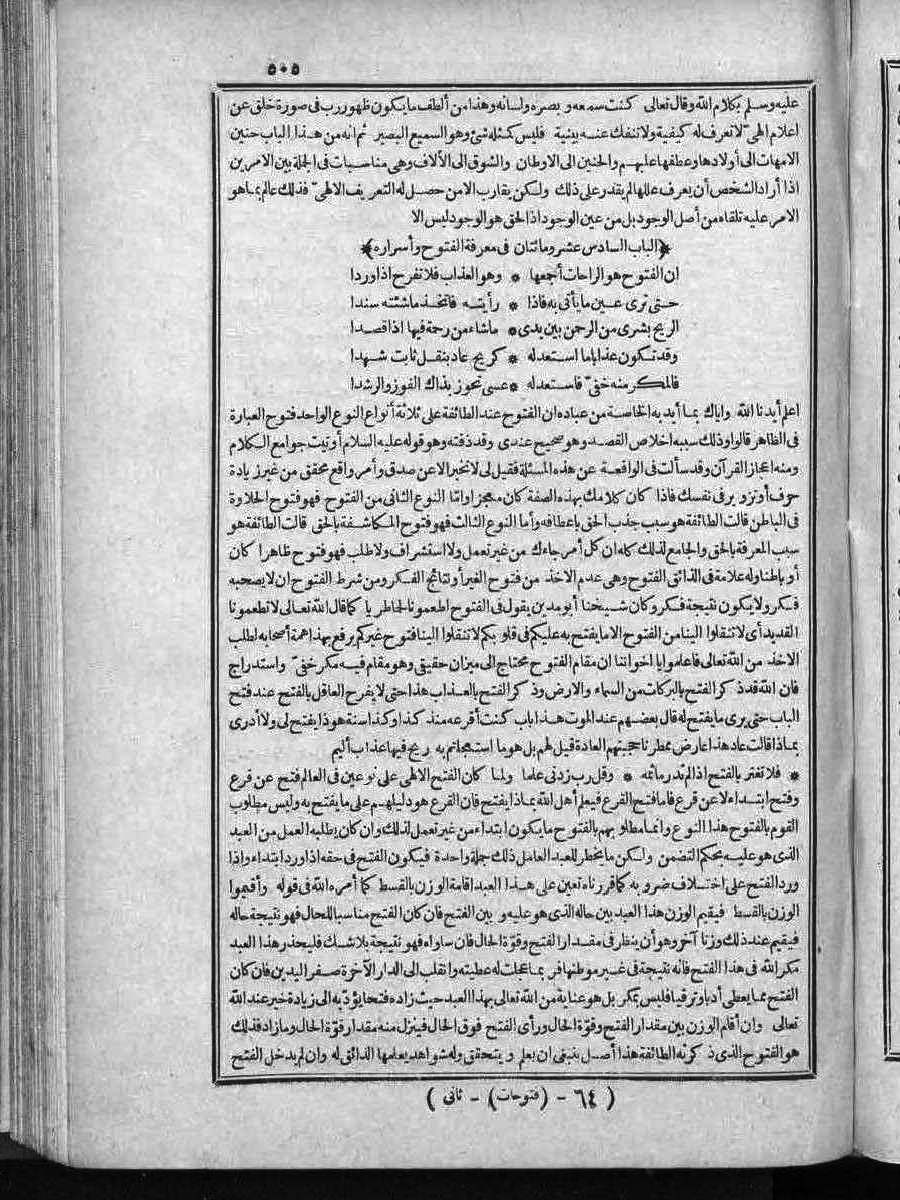 ٥٠٥
عليه وسلم بكلام الله وقال تعالى كنت سمعه وبصره ولسانه وهذا من ألطف ما يكون ظهور رب في صورة خلق عن
اعلام الهيّ لا تعرف له كيفية ولا تنفك عنه بينية فليس كمثله شئ وهو السميع البصير ثم انه من هذا الباب حنين
الامهات الى أولادها وعطفها عليهم والحنين الى الاوطان والشوق الى الآلاف وهي مناسبات في الجلة بين الامرين
اذا أراد الشخص أن يعرف عللها لم يقدر على ذلك ولكن يقارب الامن حصل له التعريف الالهيّ فذلك عالم بما هو
الامر عليه تلقاه من أصل الوجود بل من عين الوجود اذ الحق هو الوجود ليس الا
﴿الباب السادس عشر ومائتان في معرفة الفتوح وأسراره﴾
ان الفتوح هو الراحات أجمعها * وهو العذاب فلا تفرح اذا وردا
حتى ترى عين ما يأتي به فاذا * رأيته فاتخذ ما شئته سندا
الريح بشرى من الرحمن بين يدى * ما شاء من رحمة فيها اذا قصدا
وقد تكون عذابا ما استعد له * كريح عاد بنقل ثابت شهدا
فالمكر منه خفيّ فاستعد له * عسى تحوز بذاك الفوز والرشدا
اعلم أيدنا الله واياك بما أيد به الخاصة من عباده ان الفتوح عند الطائفة على ثلاثة أنواع النوع الواحد فتوح العبارة
في الظاهر قالوا وذلك سببه اخلاص القصد وهو صحيح عندى وقد ذقته وهو قوله عليه السلام أوتيت جوامع الكلام
ومنه اعجاز القرآن وقد سألت في الواقعة عن هذه المسئلة فقيل لى لا تخبر الا عن صدق وأمر واقع محقق من غير زيادة
حرف أو تزوير في نفسك فاذا كان كلامك بهذه الصفة كان معجزا وأما النوع الثاني من الفتوح فهو فتوح الحلاوة
في الباطن قالت الطائفة هو سبب جذب الحق باعطافه وأما النوع الثالث فهو فتوح المكاشفة بالحق قالت الطائفة هو
سبب المعرفة بالحق والجامع لذلك كله ان كل أمر جاءك من غير تعمل ولا استشراف ولا طلب فهو فتوح ظاهرا كان
أو باطنا وله علامة في الذائق الفتوح وهي عدم الاخذ من فتوح الغير أو نتائج الفكر ومن شرط الفتوح ان لا يصحبه
فكر ولا يكون نتيجة فكر وكان شيخنا أبو مدين يقول في الفتوح اطعمونا لحما طريا كما قال الله تعالى لا تطعمونا
القديد أى لا تنقلوا الينا من الفتوح الا ما يفتح به عليكم في قلوبكم لا تنقلوا الينا فتوح غيركم يرفع بهذا همة أصحابه لطلب
الاخذ من الله تعالى فاعلموا يا اخواننا ان مقام الفتوح محتاج الى ميزان حقيقى وهو مقام فيه مكر خفيّ واستدراج
فان الله قد ذكر الفتح بالبركات من السماء والارض وذكر الفتح بالعذاب هذا حتى لا يفرح العاقل بالفتح عند فتح
الباب حتى يرى ما يفتح له قال بعضهم عند الموت هذا باب كنت أقرعه منذ كذا وكذا سنة هو ذا يفتح لى ولا أدرى
بماذا قالت عاد هذا عارض ممطرنا حجبتهم العادة قيل لهم بل هو ما استعجلتم به ريح فيها عذاب أليم
* فلا تغتر بالفتح اذا لم تدر ما ثمه * وقل رب زدنى علما ولما كان الفتح الالهى على نوعين في العالم فتح عن قرع
وفتح ابتداء لا عن قرع فاما فتح القرع فيعلم أهل الله بماذا يفتح فان القرع هو دليلهم على ما يفتح به وليس مطلوب
القوم بالفتوح هذا النوع وانما مطلوبهم بالفتوح ما يكون ابتداء من غير تعمل لذلك وان كان يطلبه العمل من العبد
الذى هو عليه بحكم التضمن ولكن ما يخطر للعبد العامل ذلك جملة واحدة فيكون الفتح في حقه اذا ورد ابتداء واذا
ورد الفتح على اختلاف ضروبه كما قررناه تعين على هذا العبد اقامة الوزن بالقسط كما أمره الله في قوله وأقيموا
الوزن بالقسط فيقيم الوزن هذا العبد بين حاله الذى هو عليه وبين الفتح فان كان الفتح مناسبا للحال فهو نتيجة حاله
فيقيم عند ذلك وزنا آخر وهو أن ينظر في مقدار الفتح وقوّة الحال فان ساواه فهو نتيجة بلا شك فليحذر هذا العبد
مكر الله في هذا الفتح فانه نتيجة في غير موطنها فربما عجلت له عطيته وانقلب الى الدار الآخرة صفر اليدين فان كان
الفتح مما يعطى أدبا وترقيا فليس بمكر بل هو عناية من الله تعالى بهذا العبد حيث زاده فتحا يؤدّيه الى زيادة خير عند الله
تعالى وان أقام الوزن بين مقدار الفتح وقوّة الحال ورأى الفتح فوق الحال فينزل منه مقدار قوّة الحال وما زاد فذلك
هو الفتوح الذى ذكرته الطائفة هذا أصل ينبغى ان يعلم ويتحقق وله شواهد يعلمها الذائق له وان لم يدخل الفتح
( ٦٤ - (فتوحات) - ثانى )